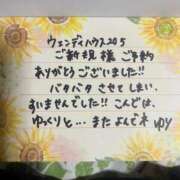 ウェンディハウス205
ご新規様 ご予約
ありがとうございました!!
バタバタ させてしまい、
すいませんでした!! こんどは、
ゆっくりと… またよんでネ
ゆり